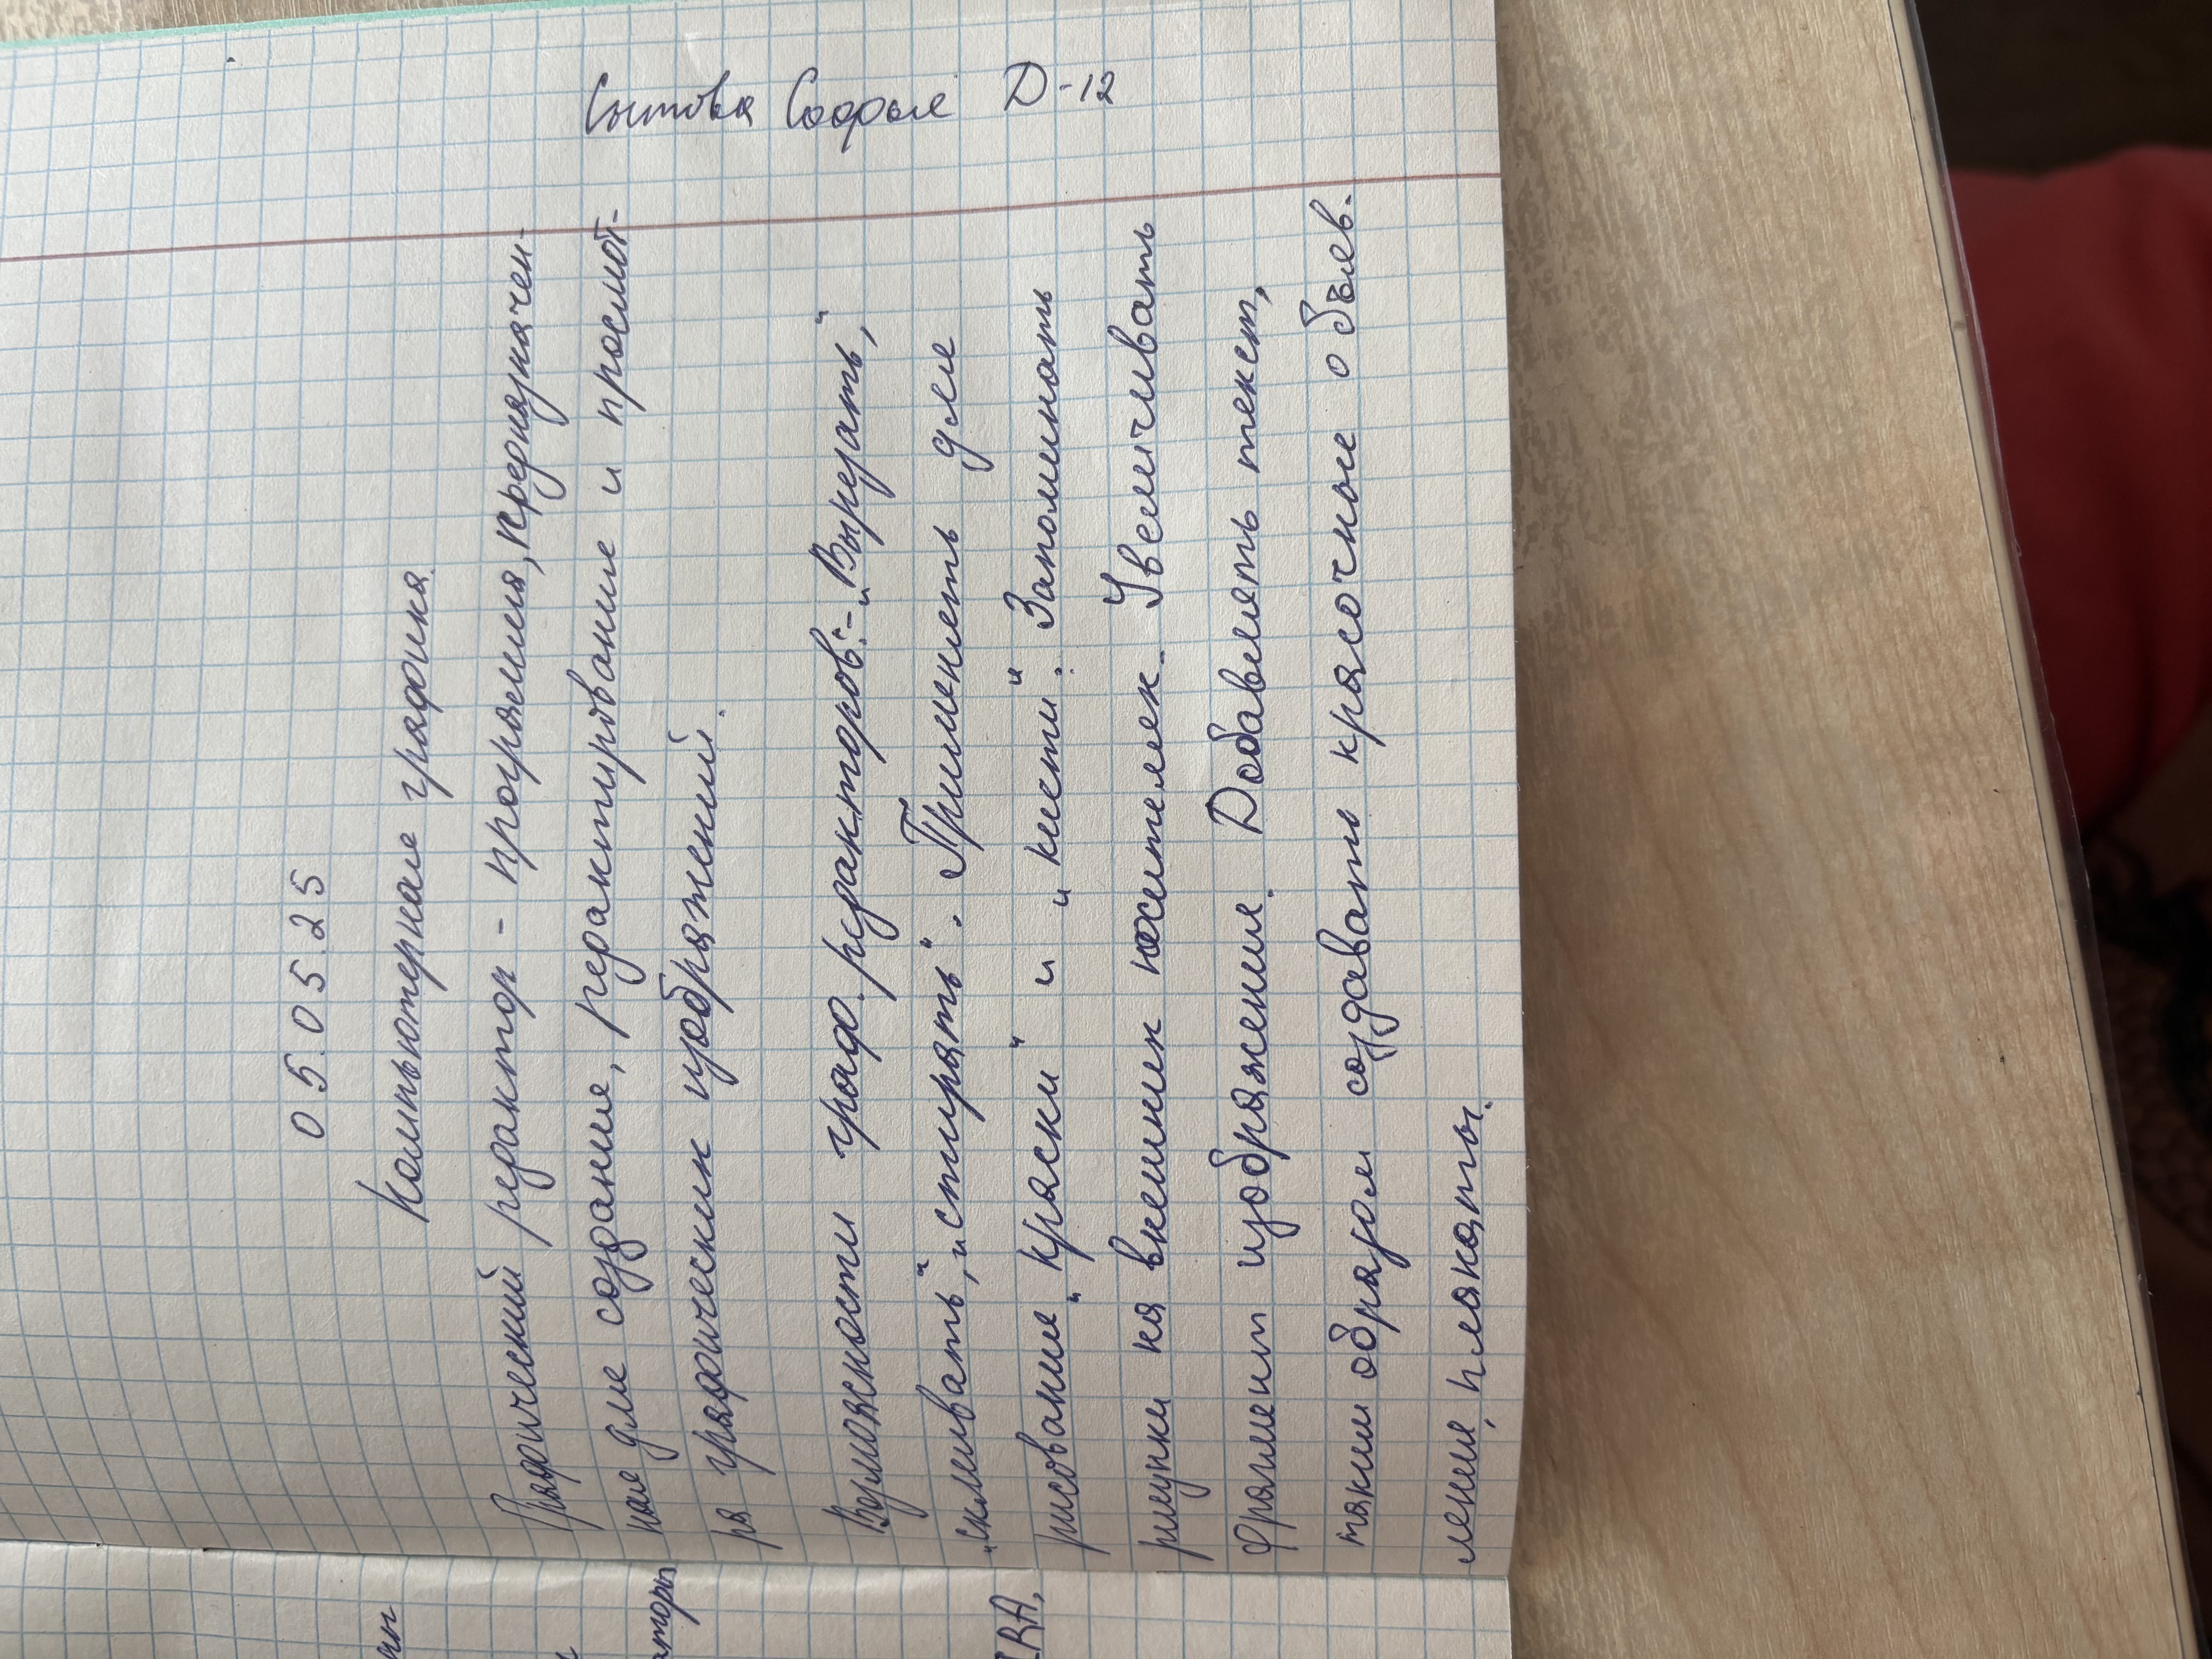 Сытова Софья Д-12
05.05.25
Компьютерная графика.
Графический редактор - программа, предназначен-
ная для создания, редактирование и просмот-
ра графических изображений.
Возможности граф. редакторов: - "Вырезать",
"склеивать", "стирать". Применять для
рисования "краски" и "кисти". Запоминать
рисунки на внешних носителях. Увеличивать
фрагмент изображения. Добавлять текст,
таким образом создавать красочные объяв-
ления, плакаты.
аторы